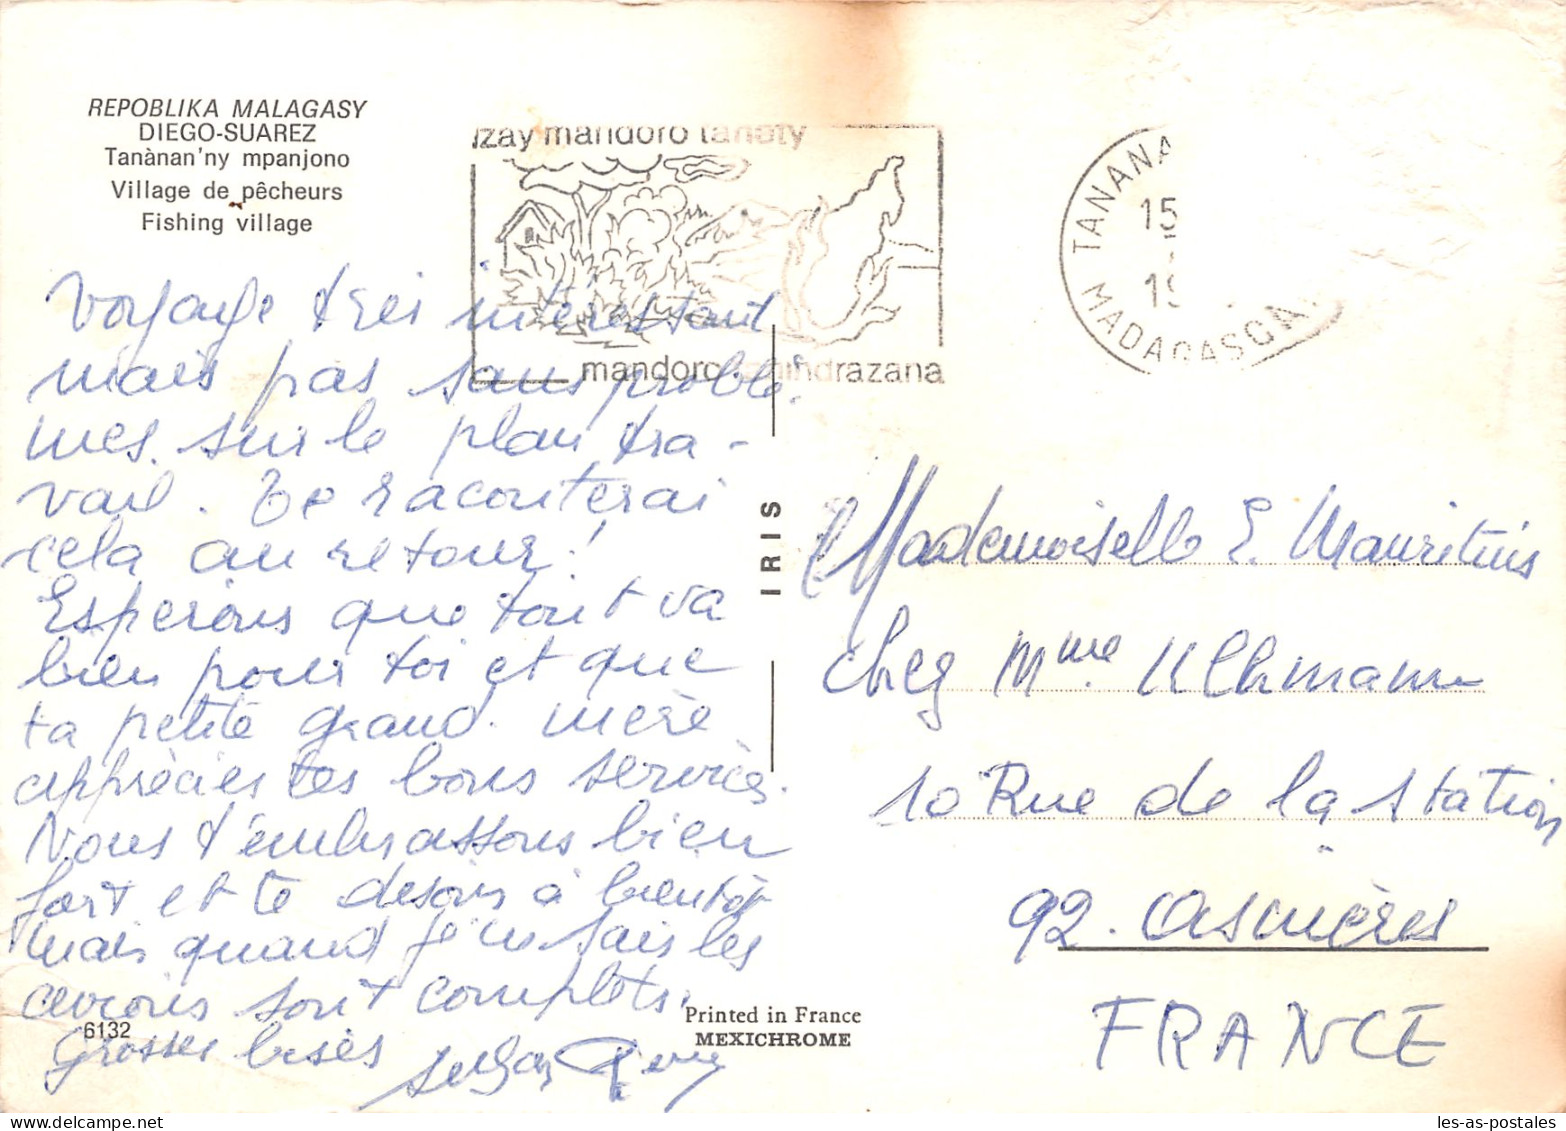 REPOBLIKA MALAGASY
DIEGO-SUAREZ
Tanànan'ny mpanjono
Village de pêcheurs
Fishing village
izay mandoro tanety
mandoro tanindrazana
TANANA
15
19
MADAGASCA
Voyage très intéressant
mais pas sans problè.
mes. sur le plan tra-
vail. Te raconterai
cela au retour!
Espérons que tout va
bien pour toi et que
ta petite grand. mère
apprécie tes bons services.
Nous t'embrassons bien
fort et te disons à bientôt
mais quand je ne sais les
avions sont complets.
Grosses bises
6132
IRIS
Printed in France
MEXICHROME
Mademoiselle E. Mauritius
chez Mme Uhlmann
10 Rue de la Station
92. Asnières
FRANCE
les-as-postales